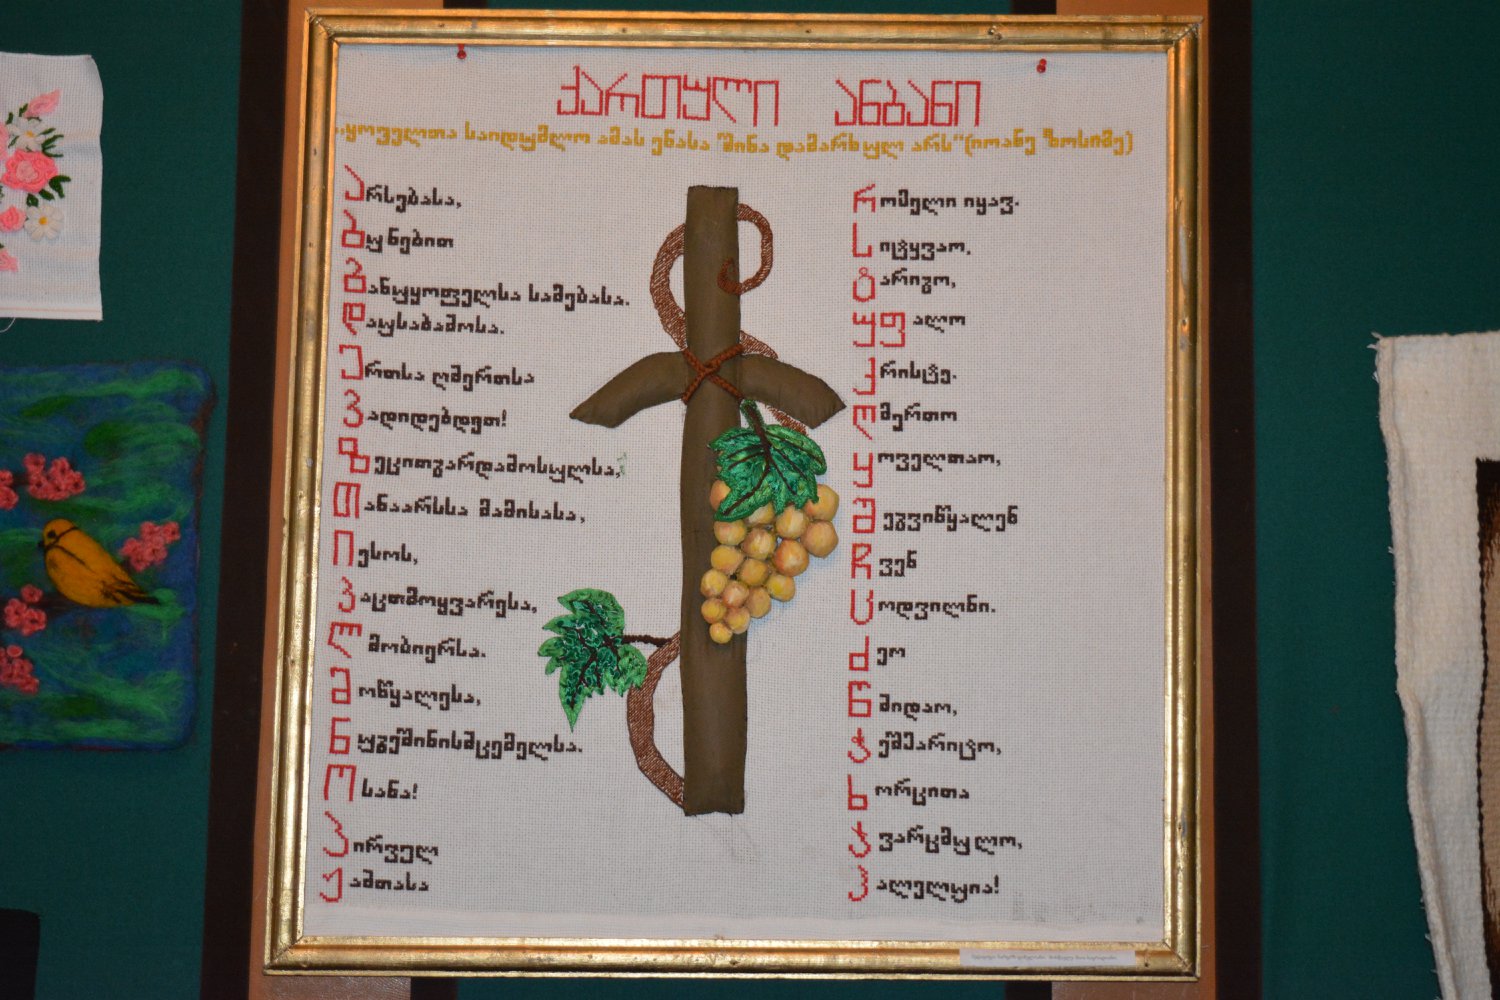 ქართული ანბანი
ყოველთა საიდუმლო ამას ენასა "შინა დამარხულ არს"(იოანე ზოსიმე)
არსებასა,
ბუნებით
განუყოფელსა სამებასა.
დაუსაბამოსა.
ერთსა ღმერთსა
ვადიდებდეთ!
ზეცითგარდამოსულსა,
თანაარსსა მამისასა,
იესოს,
კაცთმოყვარესა,
ლმობიერსა.
მოწყალესა,
ნუგეშინისმცემელსა.
ოსანა!
პირველ
ჟამთასა
რომელი იყავ.
სიტყვაო,
ტარიგო,
უფალო
ქრისტე.
ღმერთო
ყოველთაო,
შეგვიწყალენ
ჩვენ
ცოდვილნი.
ძეო
წმიდაო,
ჭეშმარიტო,
ხორცითა
ჯვარცმულო,
ჰალელუია!